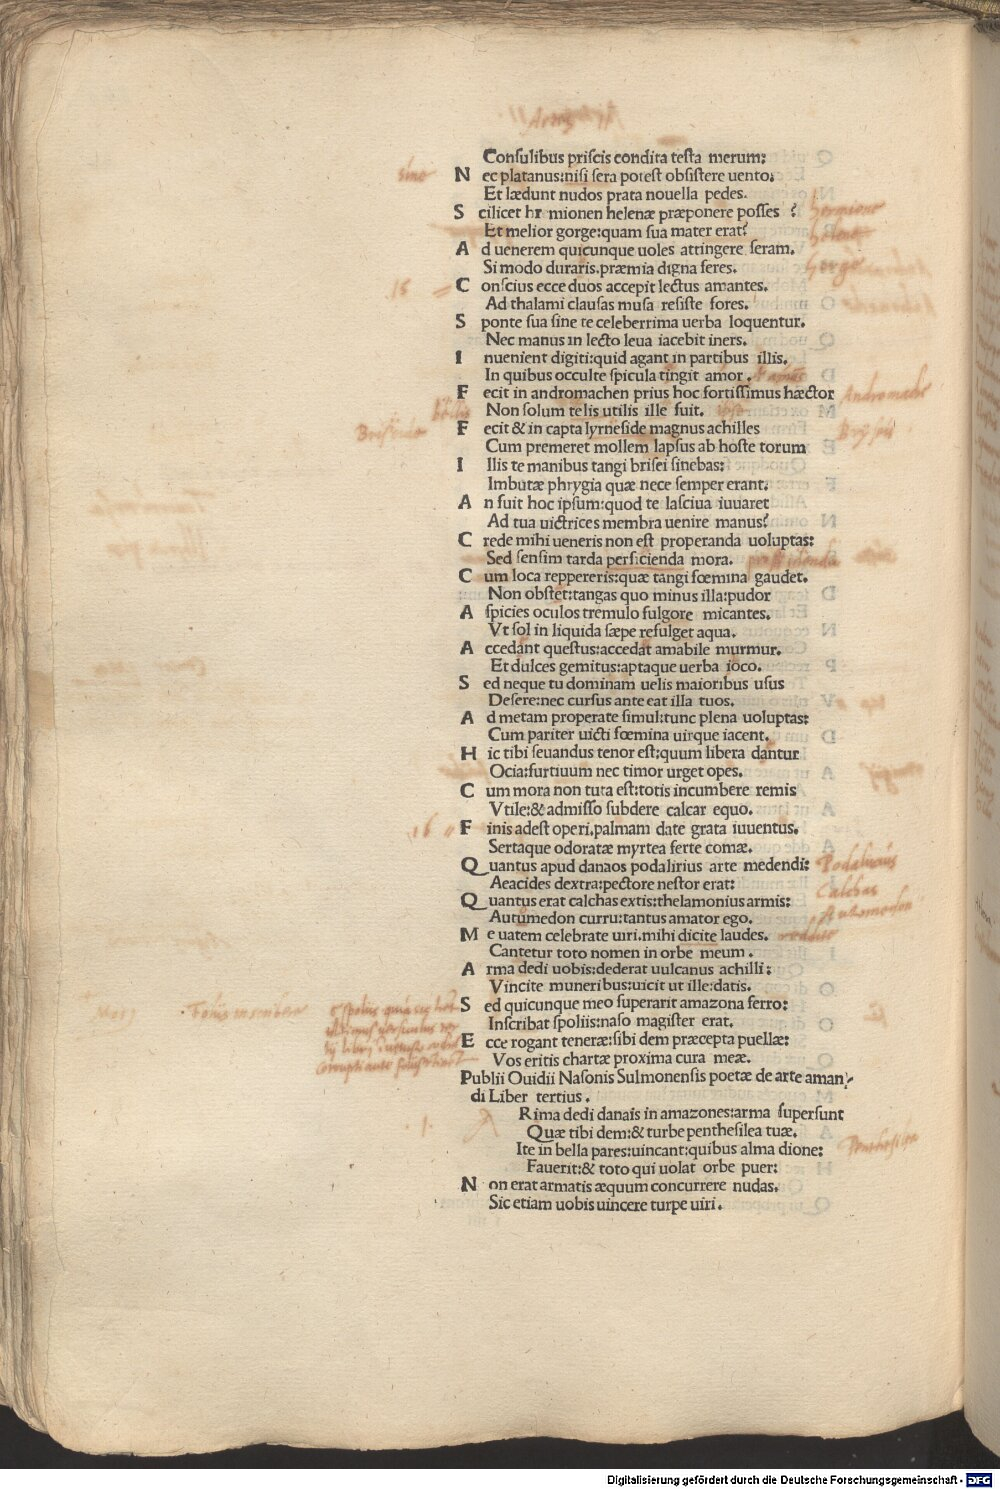 Consulibus priscis condita testa merum:
N ec platanus:nisi sera potest obsistere uento.
Et lædunt nudos prata nouella pedes.
S cilicet hr mionen helenæ præponere posses ?
Et melior gorge:quam sua mater erat?
A d uenerem quicunque uoles attingere seram.
Si modo duraris.præmia digna feres.
C onscius ecce duos accepit lectus amantes.
Ad thalami clausas musa resiste fores.
S ponte sua sine te celeberrima uerba loquentur.
Nec manus in lecto leua iacebit iners.
I nuenient digiti:quid agant in partibus illis.
In quibus occulte spicula tingit amor.
F ecit in andromachen prius hoc fortissimus hæctor
Non solum telis utilis ille fuit.
F ecit & in capta lyrneside magnus achilles
Cum premeret mollem lapsus ab hoste torum
I llis te manibus tangi brisei sinebas:
Imbutæ phrygia quæ nece semper erant.
A n fuit hoc ipsum:quod te lasciua iuuaret
Ad tua uictrices membra uenire manus?
C rede mihi ueneris non est properanda uoluptas:
Sed sensim tarda perficienda mora.
C um loca reppereris:quæ tangi fœmina gaudet.
Non obstet:tangas quo minus illa:pudor
A spicies oculos tremulo fulgore micantes.
Vt sol in liquida sæpe refulget aqua.
A ccedant questus:accedat amabile murmur.
Et dulces gemitus:aptaque uerba ioco.
S ed neque tu dominam uelis maioribus usus
Desere:nec cursus ante eat illa tuos.
A d metam properate simul:tunc plena uoluptas:
Cum pariter uicti fœmina uirque iacent.
H ic tibi seuandus tenor est:quum libera dantur
Ocia:furtiuum nec timor urget opes.
C um mora non tuta est:totis incumbere remis
Vtile:& admisso subdere calcar equo.
F inis adest operi.palmam date grata iuuentus.
Sertaque odoratæ myrtea ferte comæ.
Q uantus apud danaos podalirius arte medendi:
Aeacides dextra:pectore nestor erat:
Q uantus erat calchas extis:thelamonius armis:
Autumedon curru:tantus amator ego.
M e uatem celebrate uiri.mihi dicite laudes.
Cantetur toto nomen in orbe meum.
A rma dedi uobis:dederat uulcanus achilli:
Vincite muneribus:uicit ut ille:datis.
S ed quicunque meo superarit amazona ferro:
Inscribat spoliis:naso magister erat.
E cce rogant teneræ:sibi dem præcepta puellæ:
Vos eritis chartæ proxima cura meæ.
Publii Ouidii Nasonis Sulmonensis poetæ de arte aman-
di Liber tertius.
Rima dedi danais in amazones:arma supersunt
Quæ tibi dem:& turbe penthesilea tuæ.
Ite in bella pares:uincant:quibus alma dione:
Fauerit:& toto qui uolat orbe puer:
N on erat armatis æquum concurrere nudas.
Sic etiam uobis uincere turpe uiri.
sine
Hermione
Helena
Gorge
15
Andromache
Podalirius
Calchas
Automedon
16
Penthesilea
Digitalisierung gefördert durch die Deutsche Forschungsgemeinschaft - DFG